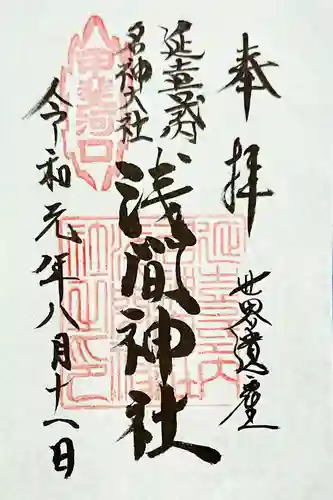 奉拝
世界遺産
延喜式内
名神大社
浅間神社
甲斐河口
令和元年八月十一日